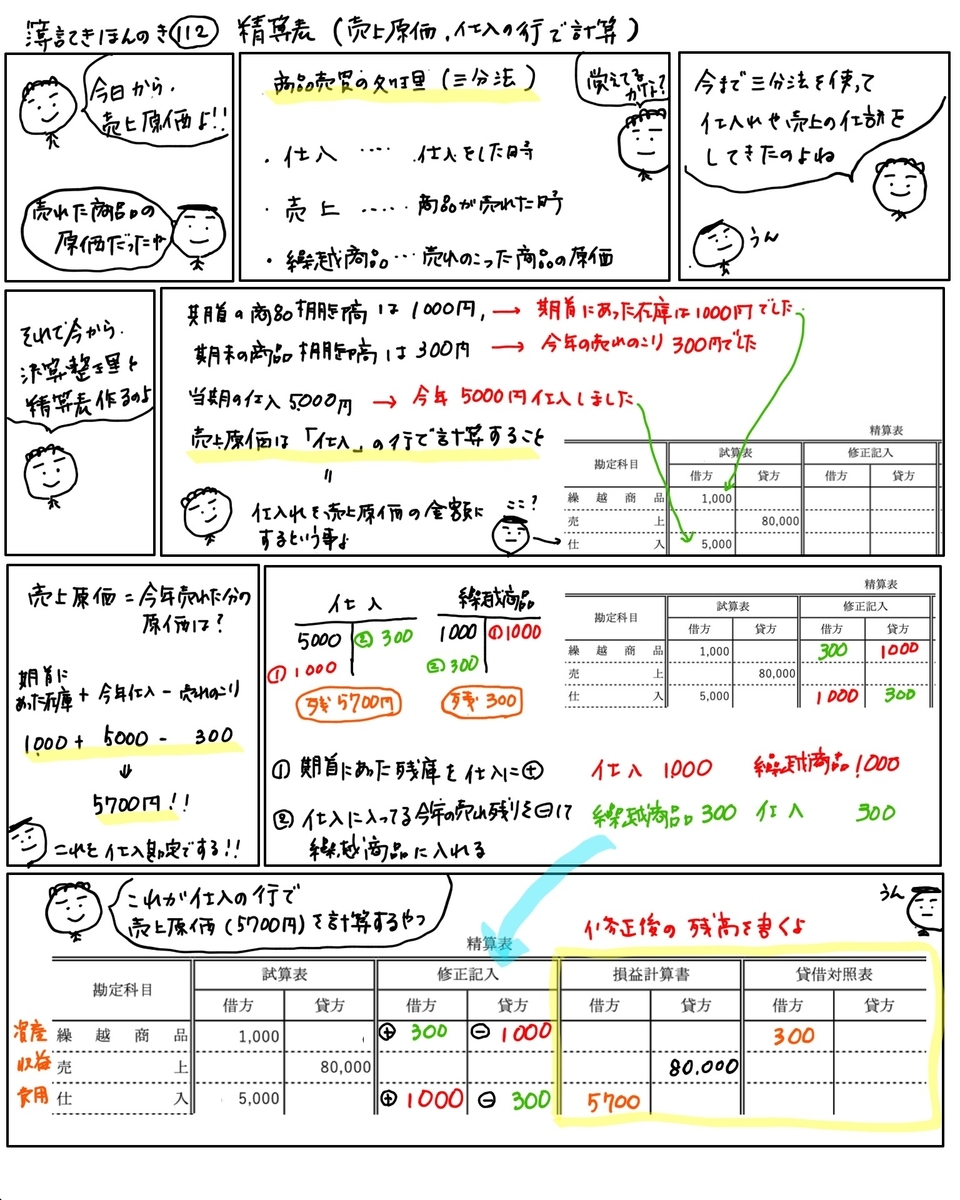 簿記きほんのき112 精算表(売上原価,仕入の行で計算)
今日から、
売上原価よ!!
売れた商品の
原価だったや
商品売買の処理(三分法)
覚えてる
かな?
・仕入 ‥‥ 仕入をした時
・売上 ‥‥‥ 商品が売れた時
・繰越商品‥‥売れのこった商品の原価
今まで三分法を使って
仕入れや売上の仕訳を
してきたのよね
うん
それで今から、
決算整理と
精算表作るのよ
期首の商品棚卸高は1000円, → 期首にあった在庫は1000円でした
期末の商品棚卸高は300円 → 今年の売れのこり300円でした
当期の仕入5,000円 → 今年5000円仕入しました
売上原価は「仕入」の行で計算すること
〃
仕入れを売上原価の金額に
するという事よ
ここ?
精算表
勘定科目 試算表 修正記入
借方 貸方 借方 貸方
繰越商品 1,000
売上 80,000
仕入 5,000
売上原価=今年売れた分の
原価は?
期首に
あった在庫+今年仕入-売れのこり
1,000+5000-300
⇓
5700円!!
これを仕入勘定でする!!
仕入
5000 ②300
①1000
残5700円
繰越商品
1000 ①1000
②300
残300
精算表
勘定科目 試算表 修正記入
借方 貸方 借方 貸方
繰越商品 1,000 300 1000
売上 80,000
仕入 5,000 1000 300
① 期首にあった残庫を仕入に⊕ 仕入 1,000 繰越商品1,000
② 仕入に入ってる今年の売れ残りを⊖して 繰越商品300 仕入 300
繰越商品に入れる
これが仕入の行で
売上原価(5700円)を計算するやつ
うん
修正後の残高を書くよ
精算表
勘定科目 試算表 修正記入 損益計算書 貸借対照表
借方 貸方 借方 貸方 借方 貸方 借方 貸方
資産 繰越商品 1,000 ⊕300 ⊖1000 300
収益 売上 80,000 80,000
費用 仕入 5,000 ⊕1000 ⊖300 5700